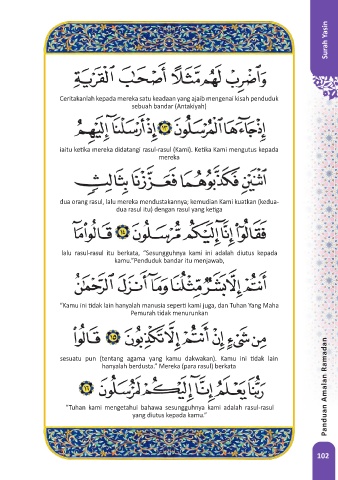 Surah Yasin
وَٱضْرِبْ لَهُم مَّثَلًا أَصْحَٰبَ ٱلْقَرْيَةِ
Ceritakanlah kepada mereka satu keadaan yang ajaib mengenai kisah penduduk
sebuah bandar (Antakiyah)
إِذْ جَآءَهَا ٱلْمُرْسَلُونَ ١٣ إِذْ أَرْسَلْنَآ إِلَيْهِمُ
iaitu ketika mereka didatangi rasul-rasul (Kami). Ketika Kami mengutus kepada
mereka
ٱثْنَيْنِ فَكَذَّبُوهُمَا فَعَزَّزْنَا بِثَالِثٍ
dua orang rasul, lalu mereka mendustakannya; kemudian Kami kuatkan (kedua-
dua rasul itu) dengan rasul yang ketiga
فَقَالُوٓا۟ إِنَّآ إِلَيْكُم مُّرْسَلُونَ ١٤ قَالُوا۟ مَآ
lalu rasul-rasul itu berkata, "Sesungguhnya kami ini adalah diutus kepada
kamu."Penduduk bandar itu menjawab,
أَنتُمْ إِلَّا بَشَرٌ مِّثْلُنَا وَمَآ أَنزَلَ ٱلرَّحْمَٰنُ
"Kamu ini tidak lain hanyalah manusia seperti kami juga, dan Tuhan Yang Maha
Pemurah tidak menurunkan
مِن شَىْءٍ إِنْ أَنتُمْ إِلَّا تَكْذِبُونَ ١٥ قَالُوا۟
sesuatu pun (tentang agama yang kamu dakwakan). Kamu ini tidak lain
hanyalah berdusta." Mereka (para rasul) berkata
رَبُّنَا يَعْلَمُ إِنَّآ إِلَيْكُمْ لَمُرْسَلُونَ ١٦
"Tuhan kami mengetahui bahawa sesungguhnya kami adalah rasul-rasul
yang diutus kepada kamu."
Panduan Amalan Ramadan
102